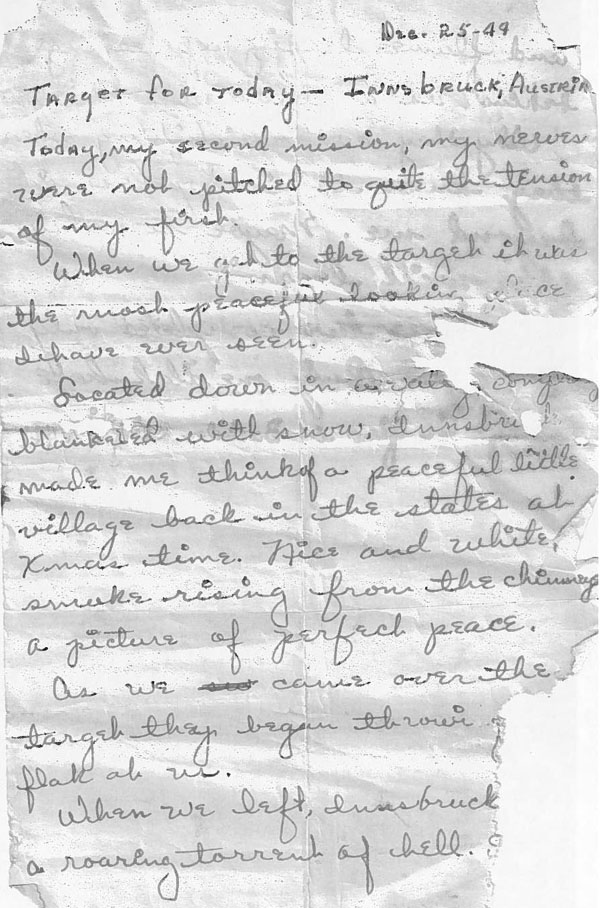 Dec. 25-44
Target for today — Innsbruck, Austria
Today, my second mission, my nerves
were not pitched to quite the tension
of my first.
When we got to the target it was
the most peaceful lookin place
I have ever seen.
Located down in a valley,
blanketed with snow, Innsbruck
made me think of a peaceful little
village back in the states at
Xmas time. Nice and white,
smoke rising from the chimneys
a picture of perfect peace.
As we came over the
target they began throwi
flak at us.
When we left, Innsbruck
a roaring torrent of hell.